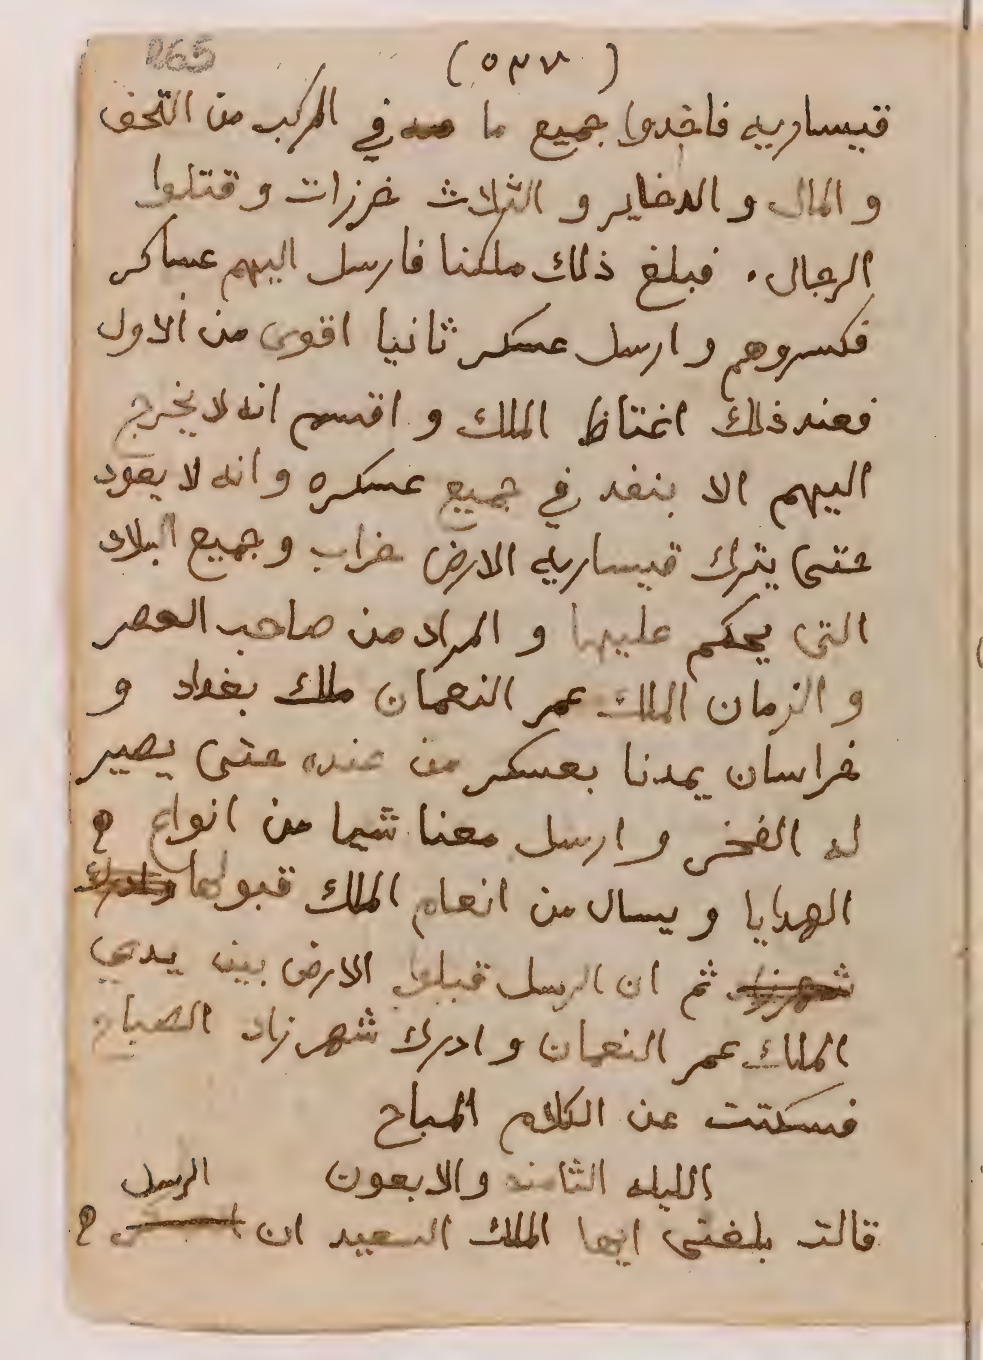 265
(٥٣٧)
قيساريه فاخدوا جميع ما في المركب من التحف
و المال و الدخاير و الثلاث خرزات و قتلوا
الرجال. فبلغ ذلك ملكنا فارسل اليهم عساكر
فكسروهم و ارسل عسكر ثانيا اقوى من الاول
فعند ذلك اغتاظ الملك و اقسم انه لا يخرج
اليهم الا بنفد في جميع عسكره و انه لا يعود
حتى يترك قيساريه الارض خراب و جميع البلاد
التى يحكم عليها و المراد من صاحب العصر
و الزمان الملك عمر النعمان ملك بغداد و
خراسان يمدنا بعسكر من عنده حتى يصير
له الفخر و ارسل معنا شيا من انواع
الهدايا و يسال من انعام الملك قبولها وادرك
شهرزاد ثم ان الرسل قبلوا الارض بين يدي
الملك عمر النعمان و ادرك شهرزاد الصباح
فسكتت عن الكلام المباح
الليله الثامنه والابعون
الرسل
قالت بلغنى ايها الملك السعيد ان